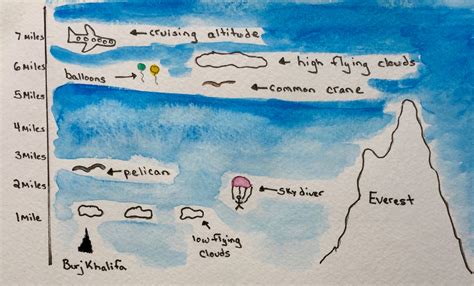 7 miles
cruising altitude
6 Miles
high flying clouds
balloons
common crane
5 Miles
4 Miles
3 miles
pelican
2 Miles
skydiver
Everest
1 Mile
low flying
clouds
Burj Khalifa